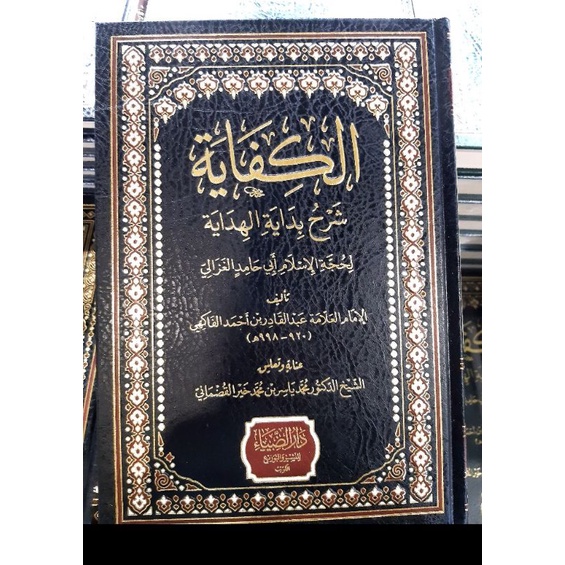 الكِفَايَة
شَرْحُ بِدَايَةِ الهِدَايَةِ
لِحُجَّةِ الإِسْلَامِ أَبِي حَامِدٍ الغَزَالِيّ
تأليف
الإِمَامِ العَلَّامَةِ عَبْدِ القَادِرِ بْنِ أَحْمَدَ الفَاكِهِي
(٩٢٠-٩٩٨ه)
عناية وتعليق
الشَّيْخ الدّكتور مُحَمَّد يَاسِر بن مُحَمَّد خَيْر القُضْمَانِيّ
دَارُ الضِّيَاءِ
للنشر والتوزيع
الكويت